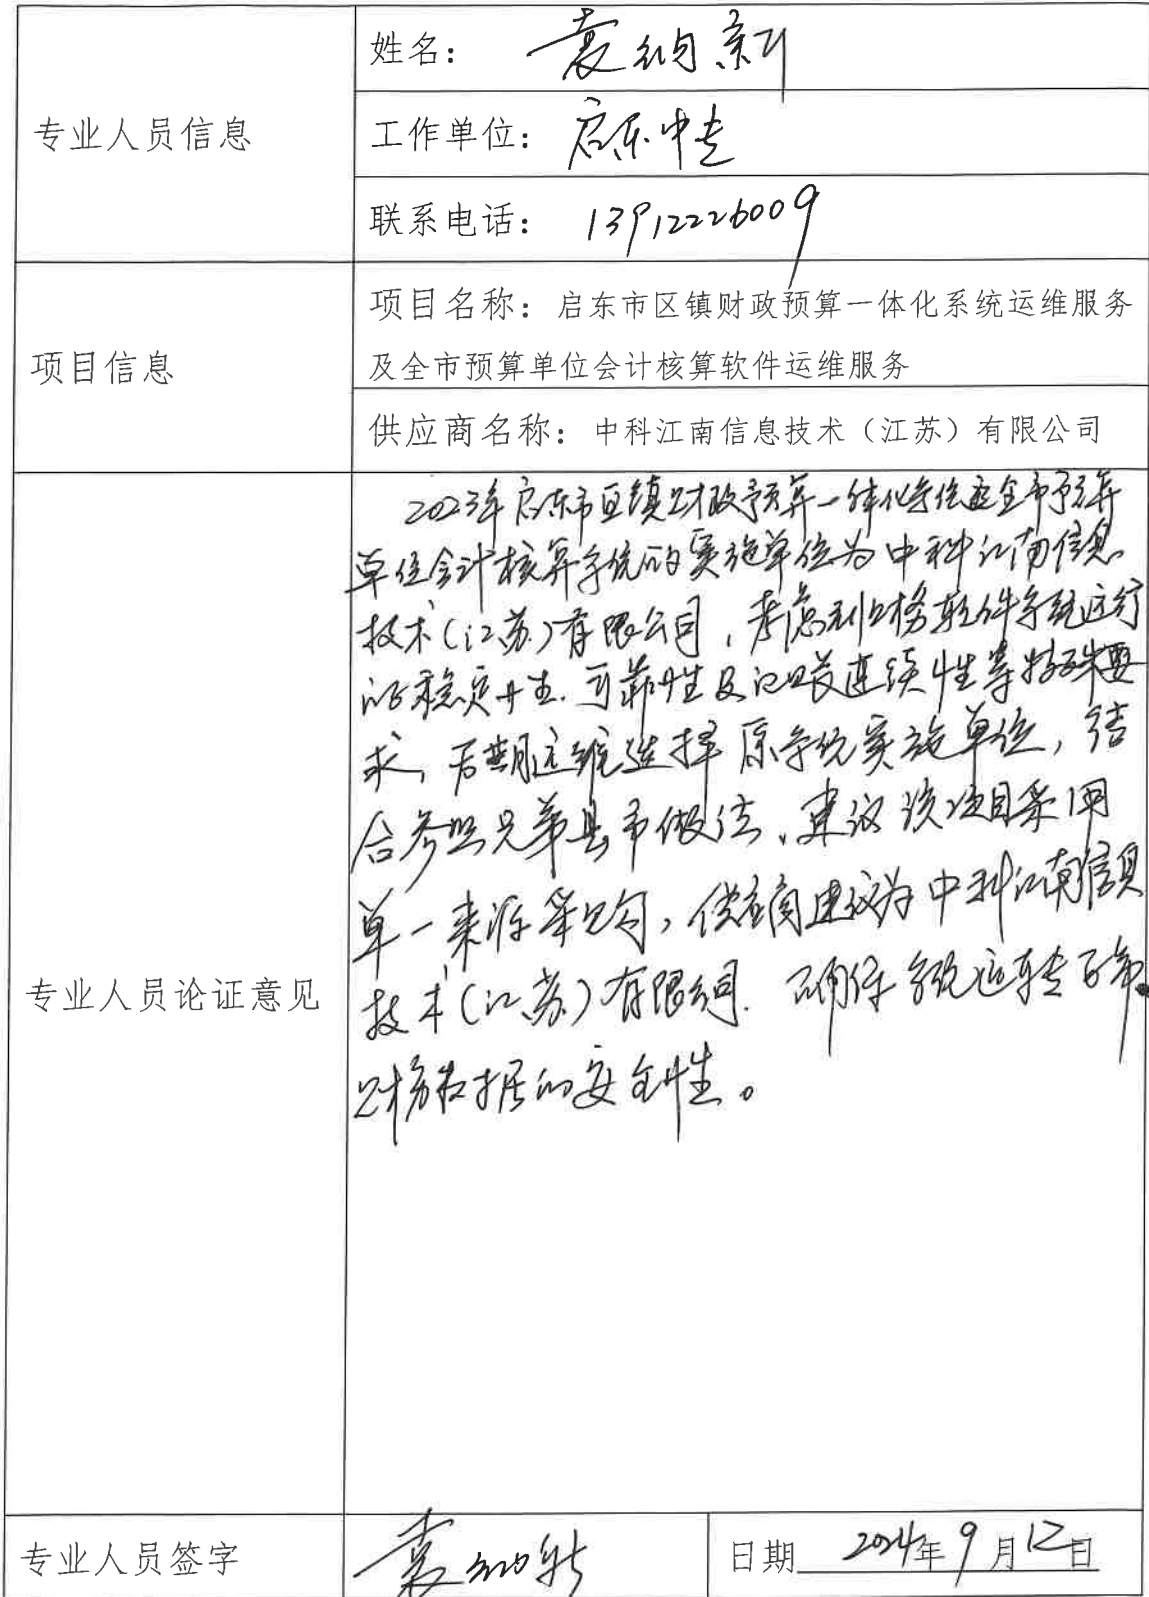 专业人员信息
姓名： 袁纳新
工作单位： 启东中专
联系电话： 13912226009
项目信息
项目名称：启东市区镇财政预算一体化系统运维服务
及全市预算单位会计核算软件运维服务
供应商名称：中科江南信息技术（江苏）有限公司
专业人员论证意见
2023年启东市区镇财政预算一体化系统及全市预算
单位会计核算系统的实施单位为中科江南信息
技术(江苏)有限公司，考虑到财务软件系统运行
的稳定性、可靠性及记账连续性等特殊要
求，后期运维选择原系统实施单位，结
合参照兄弟县市做法，建议该项目采用
单一来源采购，供应商建议为中科江南信息
技术(江苏)有限公司. 确保系统运转
财务数据的安全性。
专业人员签字
袁纳新
日期 2024年9月12日